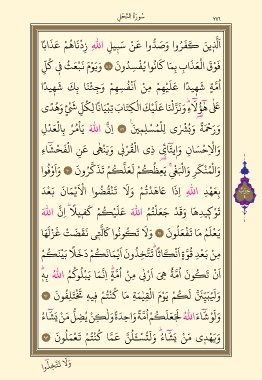 سُورَةُ النَّحْلِ ٢٧٦
اَلَّذ۪ينَ كَفَرُوا وَصَدُّوا عَنْ سَب۪يلِ اللّٰهِ زِدْنَاهُمْ عَذَاباً
فَوْقَ الْعَذَابِ بِمَا كَانُوا يُفْسِدُونَ ﴿٨٨﴾ وَيَوْمَ نَبْعَثُ ف۪ي كُلِّ
اُمَّةٍ شَه۪يداً عَلَيْهِمْ مِنْ اَنْفُسِهِمْ وَجِئْنَا بِكَ شَه۪يداً
عَلٰى هٰٓؤُ۬لَٓاءِ وَنَزَّلْنَا عَلَيْكَ الْكِتَابَ تِبْيَاناً لِكُلِّ شَيْءٍ وَهُدًى
وَرَحْمَةً وَبُشْرٰى لِلْمُسْلِم۪ينَ ﴿٨٩﴾ اِنَّ اللّٰهَ يَأْمُرُ بِالْعَدْلِ
وَالْاِحْسَانِ وَا۪يتَٓائِ ذِي الْقُرْبٰى وَيَنْهٰى عَنِ الْفَحْشَٓاءِ
وَالْمُنْكَرِ وَالْبَغْيِ يَعِظُكُمْ لَعَلَّكُمْ تَذَكَّرُونَ ﴿٩٠﴾ وَاَوْفُوا
بِعَهْدِ اللّٰهِ اِذَا عَاهَدْتُمْ وَلَا تَنْقُضُوا الْاَيْمَانَ بَعْدَ
تَوْك۪يدِهَا وَقَدْ جَعَلْتُمُ اللّٰهَ عَلَيْكُمْ كَف۪يلاً اِنَّ اللّٰهَ
يَعْلَمُ مَا تَفْعَلُونَ ﴿٩١﴾ وَلَا تَكُونُوا كَالَّت۪ي نَقَضَتْ غَزْلَهَا
مِنْ بَعْدِ قُوَّةٍ اَنْكَاثاً تَتَّخِذُونَ اَيْمَانَكُمْ دَخَلاً بَيْنَكُمْ
اَنْ تَكُونَ اُمَّةٌ هِيَ اَرْبٰى مِنْ اُمَّةٍ اِنَّمَا يَبْلُوكُمُ اللّٰهُ بِه۪
وَلَيُبَيِّنَنَّ لَكُمْ يَوْمَ الْقِيٰمَةِ مَا كُنْتُمْ ف۪يهِ تَخْتَلِفُونَ ﴿٩٢﴾
وَلَوْ شَٓاءَ اللّٰهُ لَجَعَلَكُمْ اُمَّةً وَاحِدَةً وَلٰكِنْ يُضِلُّ مَنْ يَشَٓاءُ
وَيَهْد۪ي مَنْ يَشَٓاءُ وَلَتُسْـَٔلُنَّ عَمَّا كُنْتُمْ تَعْمَلُونَ ﴿٩٣﴾
وَلَا تَتَّخِذُٓوا